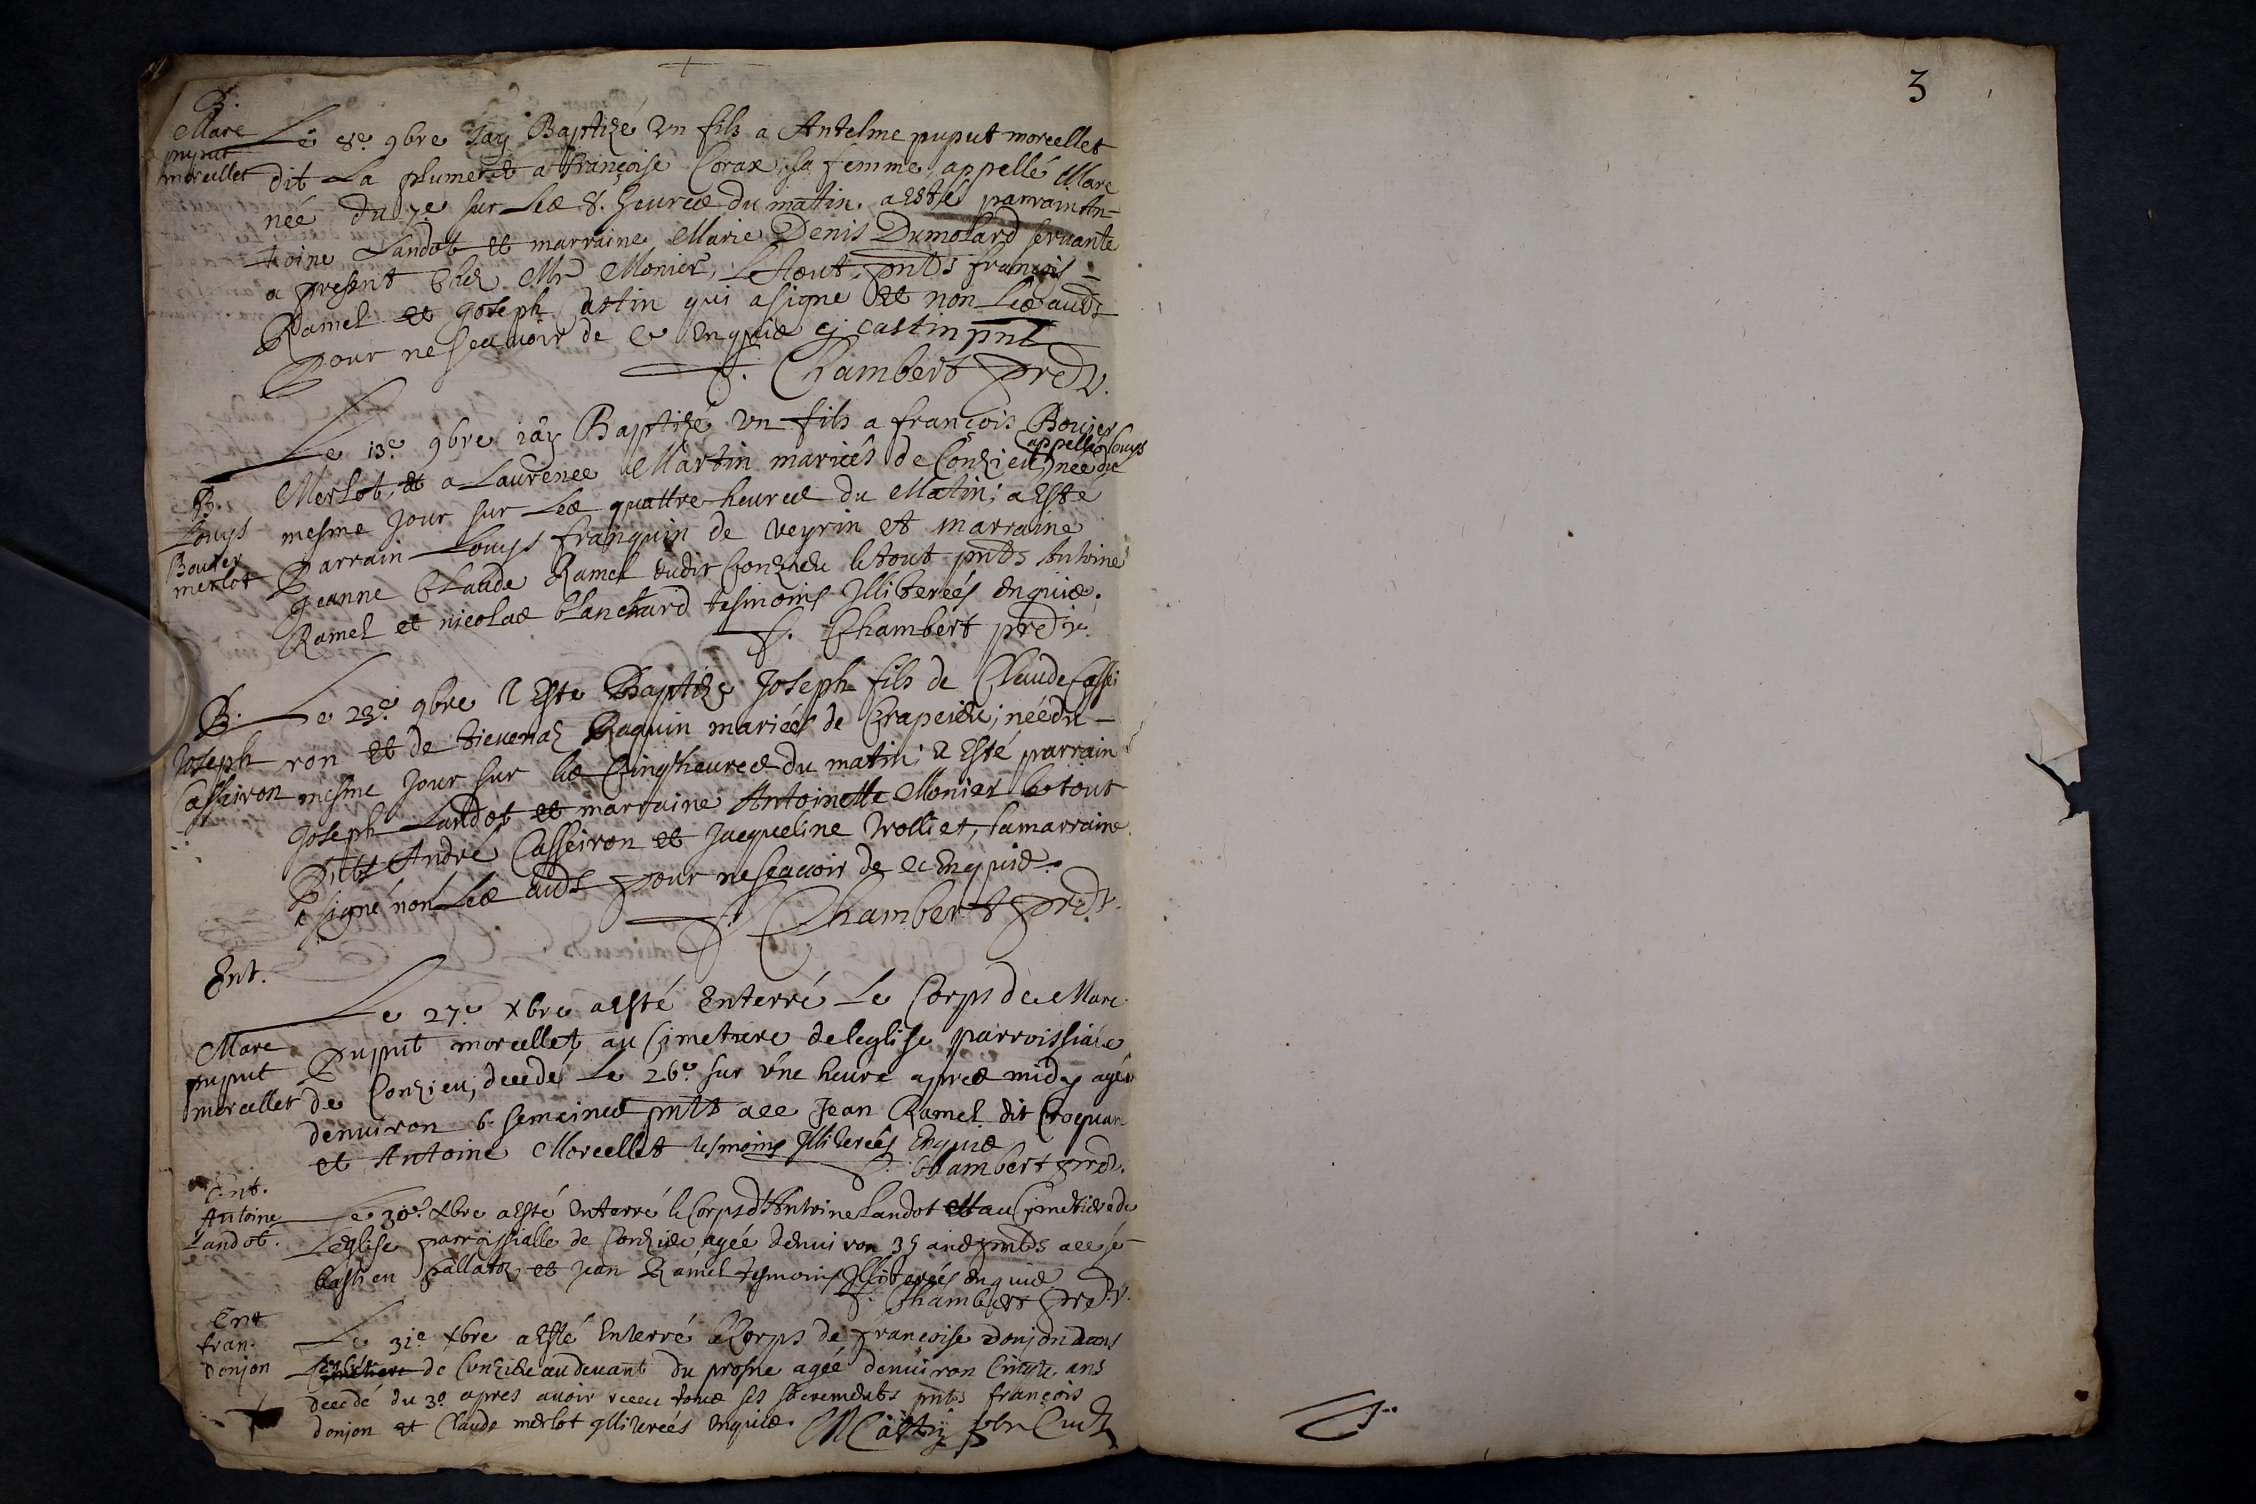 3
B.
Marc
puput
morcellet
Le 8e. 9bre Jay Baptizé un fils a Antelme puput morcellet
dit La plume et a françoise Corax sa femme, appellé Marc
née du 7e sur Les 8. heures du matin. a Esté parrain An-
toine Landot et marraine Marie Denis Dumolard servante
a present chez Mr Monier, le tout pnts françois
Ramel et Joseph Castin qui a signe et non Les auds
pour ne scauoir de ce Enquis castin pnt
Chambert pred v.
B.
Louys
Bouier
merlot
Le 13e. 9bre Jay Baptizé un fils a françois Bouier
Merlot, et a Laurence Martin mariés de Conzieu, appellé Louys née du
mesme Jour sur Les quattre heures du Matin; a Esté
Parrain Louys franquin de veyrin et marraine
Jeanne Claude Ramel dudit Conzieu le tout pnts Antoine
Ramel et nicolas blanchard tesmoins Illiterés enquis.
Chambert pred v.
B.
Joseph
Casseiron
Le 23e. 9bre a Este Baptize Joseph fils de Claude Cassei
ron et de Raquin mariés de Crapeieu; née du
mesme Jour sur les Cinq heures du matin; a Esté parrain
Joseph Landot et marraine Antoinette Monier le tout
Pnts André Casseiron et Jacqueline Trolliet, la marraine
a signé non Les auds pour ne scauoir de ce Enquis.
Chambert pred v.
Ent.
Marc
puput
morcellet
Le 27e xbre a esté Enterré Le Corps de Marc
Puput morcellet, au Cimetiere de leglise parroissiale
de Conzieu, decede Le 26e. sur une heure apres midy agée
denuiron 6 semaines pnts a ce Jean Ramel dit Croquan
et Antoine Morcellet tesmoins Illiterés Enquis
Chambert pred v.
Ent.
Antoine
Landot.
Le 30e. xbre a esté Enterré le Corps d'Antoine Landot au Cimetiere de
Leglise parroissialle de Conzieu agée denuiron 35 ans pnts a ce sé-
bastien pallatin et Jean Ramel tesmoins Illiterés enquis
Chambert pred v.
Ent
fran.
Donjon
Le 31e xbre a esté Enterré le Corps de françoise Donjon dans
Leglise de Conzieu au deuant du prosne agée denuiron Cinqte ans
decedé du 30 apres auoir receu tous ses sacrements pnts françois
donjon et Claude merlot Illiterés enquis.